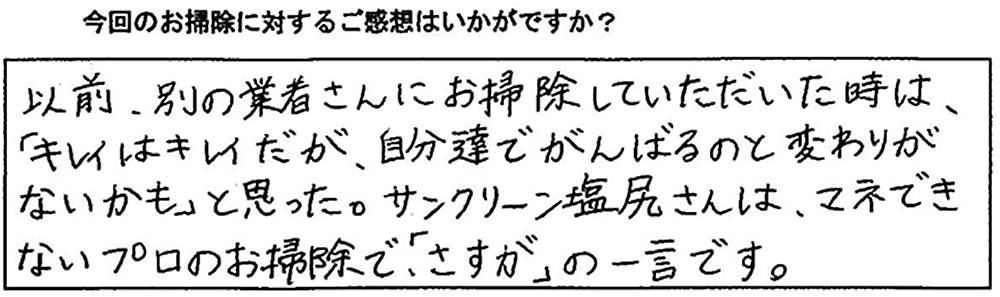 今回のお掃除に対するご感想はいかがですか？
以前、別の業者さんにお掃除していただいた時は、
「キレイはキレイだが、自分達でがんばるのと変わりが
ないかも」と思った。サンクリーン塩尻さんは、マネでき
ないプロのお掃除で、「さすが」の一言です。